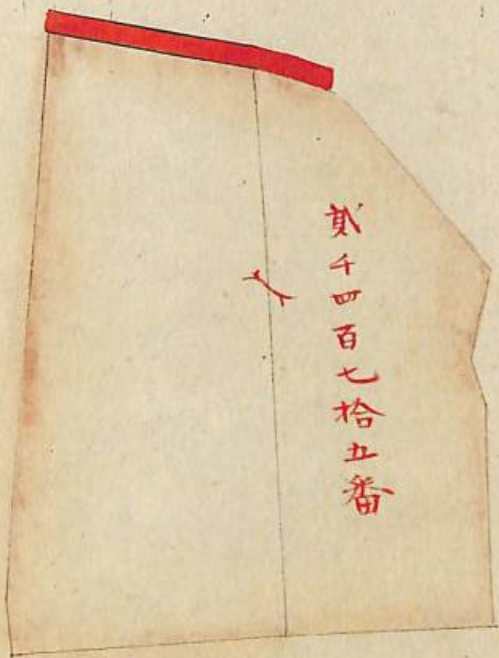 貳千四百七拾五番